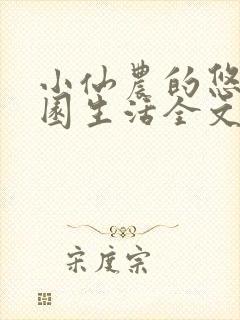 小仙農的悠
園生活全文
宋度宗